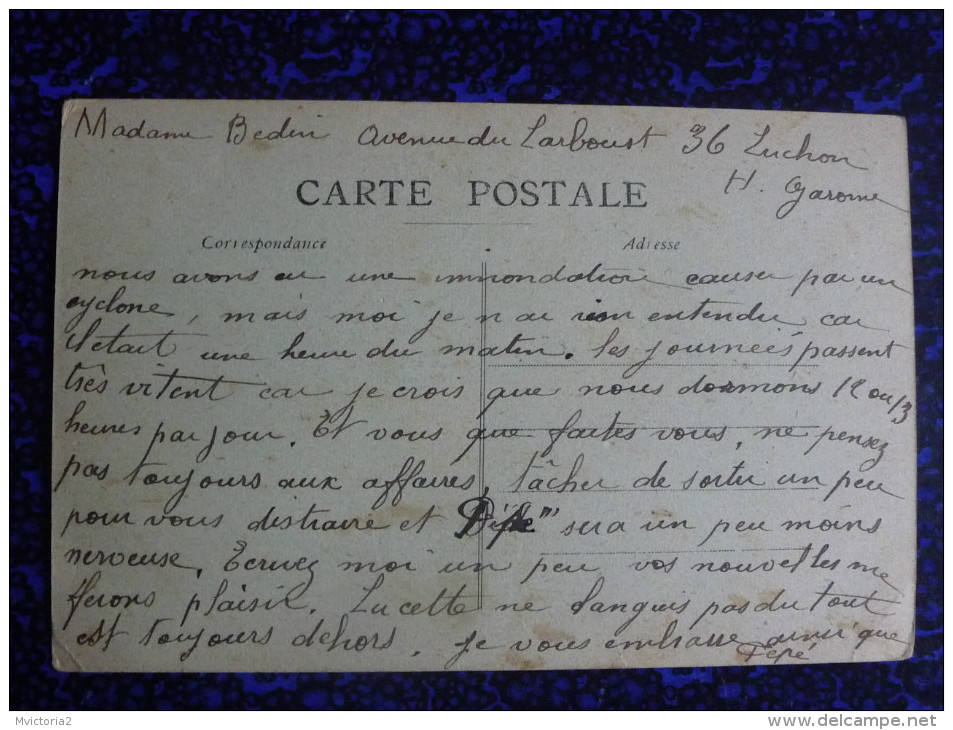 Madame Bedin avenue du Larboust 36 Luchon
H. Garonne
CARTE POSTALE
Correspondance Adresse
nous avons eu une innondation causer par un
cyclone, mais moi je n ai rien entendu car
c'etait une heure du matin. les journées passent
très vitent car je crois que nous dormons 12 ou 13
heures par jour. Et vous que faites vous, ne pensez
pas toujours aux affaires, tâcher de sortir un peu
pour vous distraire et Pépé sera un peu moins
nerveuse. Ecrivez moi un peu vos nouvelles me
ferons plaisir. Lucette ne languis pas du tout
est toujours dehors. je vous embrasse ainsi que
Pépé
Mvictoria2
http://www.delcampe.net